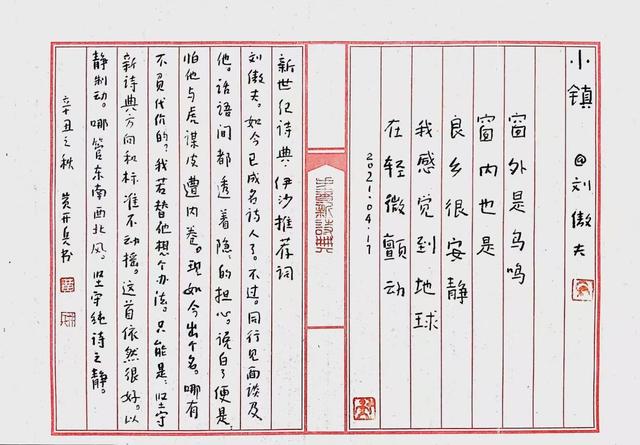 小镇 @刘傲夫
窗外是鸟鸣
窗内也是
良乡很安静
我感觉到地球
在轻微颤动
2021.04.17
新世纪诗典·伊沙推荐词
刘傲夫。如今已成名诗人了。不过。同行见面谈及
他。话语间都透着隐的担心。说白了便是。
怕他与虎谋皮遭内卷。现如今出个名。哪有
不负代价的？我若替他想个办法。只能是。坚守
新诗典方向和标准不动摇。这首依然很好。以
静制动。哪管东南西北风。坚守纯诗之静。
辛丑之秋 黄开兵书